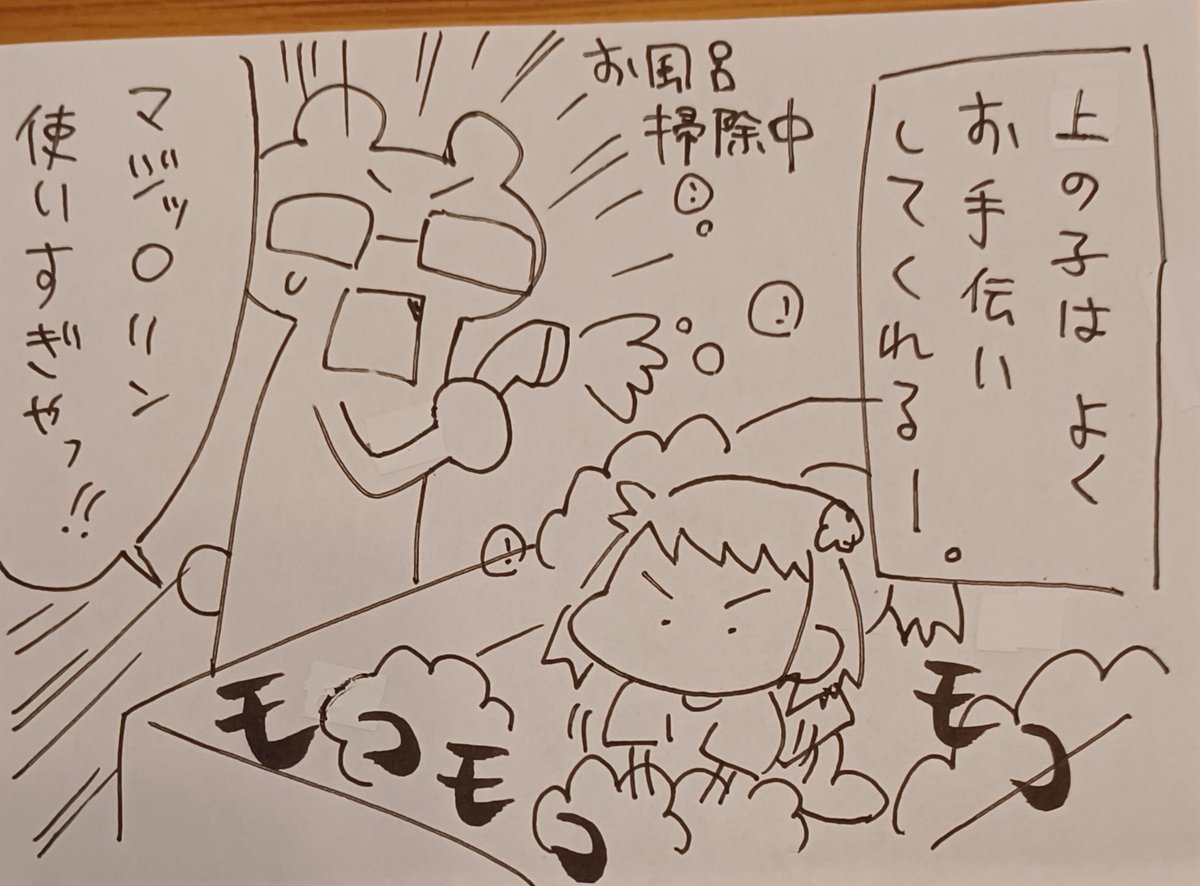 上の子は よく
お手伝い
してくれるー。
お風呂
掃除中
マジッ○リン
使いすぎやっ!!
モコモコ
モコ